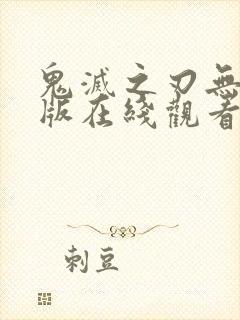 鬼滅之刃無
版在綫觀看
刺豆